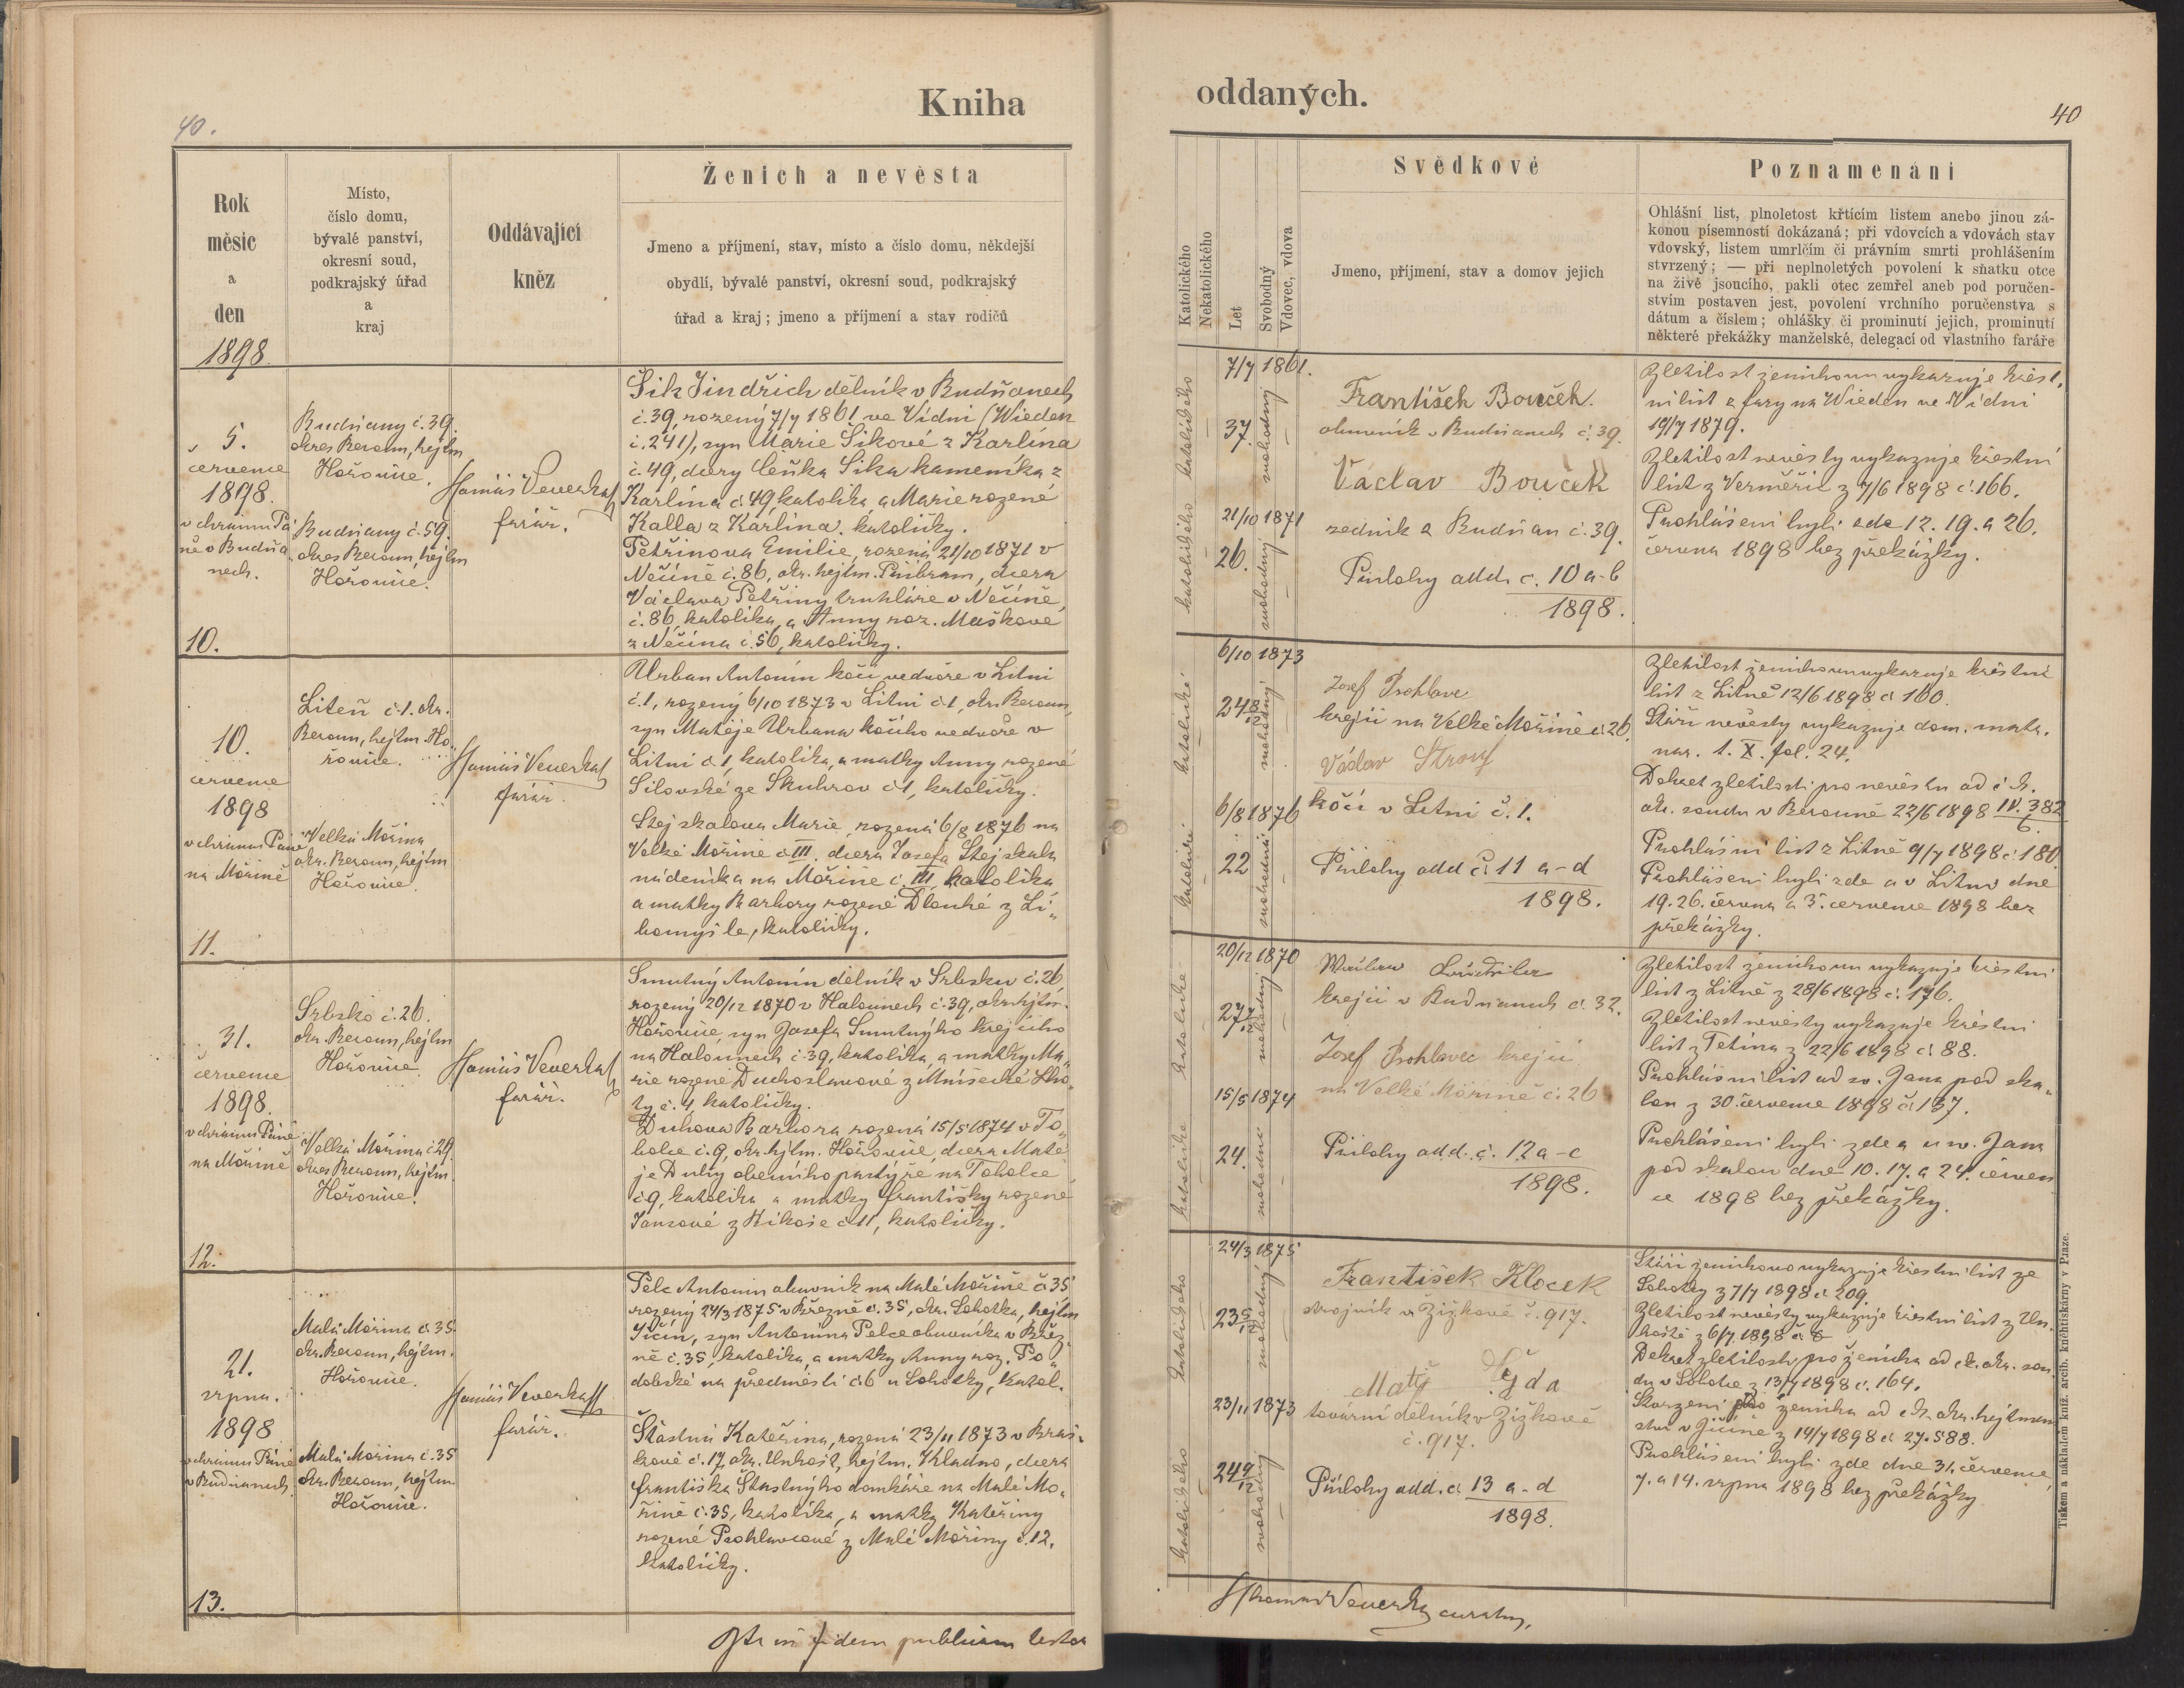 40.
Kniha
Rok
měsíc
a
den
1898.
Místo,
číslo domu,
bývalé panství,
okresní soud,
podkrajský úřad
a
kraj
Oddávající
kněz
Ženich a nevěsta
Jmeno a příjmení, stav, místo a číslo domu, někdejší
obydlí, bývalé panství, okresní soud, podkrajský
úřad a kraj; jmeno a příjmení a stav rodičů
5.
července
1898.
v chrámu Pá
ně v Budňa
nech.
10.
Budňany č. 39.
okres Beroun, hejtm
Hořovice.
Budňany č. 59.
okres Beroun, hejtm
Hořovice.
Veverka
farář.
Šik Jindřich dělník v Budňanech
č. 39, rozený 7/7 1861 ve Vídni (Wieden
č. 241), syn Marie Šikové z Karlína
č. 49, dcery Šika kameníka z
Karlína č. 49, katolíka, a Marie rozené
Kalla z Karlína. katoličky.
Petřinova Emilie, rozená 21/10 1871 v
Nečíně č. 86, okr. hejtm. Příbram, dcera
Václava Petřiny truhláře v Nečíně,
č. 86, katolíka, a Anny roz. Maškové
z Nečína č. 56, katoličky.
10.
července
1898
v chrámu Páně
na Mořině
11.
Liteň č. 1. okr.
Beroun, hejtm. Ho„
řovice.
Velká Mořina
okr. Beroun, hejtm
Hořovice.
Veverka
farář.
Urban Antonín kočí ve dvoře v Litni
č. 1, rozený 6/10 1873 v Litni č. 1, okr. Beroun,
syn Matěje Urbana kočího ve dvoře v
Litni č. 1, katolíka, a matky Anny rozené
Silovské ze Skuhrov č. 1, katoličky.
Stejskalova Marie, rozená 6/8 1876 na
Velké Mořině č. III. dcera Josefa Stejskala
nádeníka na Mořine č. III, katolíka
a matky Barbory rozené Dlouhé z Li„
homyšle, katoličky.
31.
července
1898.
v chrámu Páně
na Mořině
12.
Srbsko č. 26.
okr. Beroun, hejtm
Hořovice.
Velká Mořina č. 29.
okres Beroun, hejtm.
Hořovice.
Veverka
farář.
Smutný Antonín dělník v Srbsku č. 26,
rozený 20/12 1870 v Halounech č. 39, okr. hejtm.
Hořovice, syn Josefa Smutnýho krejčího
na Halounech č. 39, katolíka, a matky Ma„
rie rozené Duchoslavové z Mníšecké Lho„
ty č. 4 katoličky.
Duhova Barbora rozená 15/5 1874 v To„
bolce č. 9, okr. hejtm. Hořovice, dcera Matě
je Duhy obecního pastýře na Tobolce
č. 9, katolíka a matky Františky rozené
z č. 11, katoličky.
21.
srpna.
1898
v chrámu Páně
v Budňanech.
13.
Malá Mořina č. 35.
okr. Beroun, hejtm.
Hořovice.
Malá Mořina č. 35
okr. Beroun, hejtm.
Hořovice.
Veverka
farář.
Pelc Antonín obuvník na Malé Mořině č. 35
rozený 24/3 1875 v Březně č. 35, okr. Sobotka, hejtm
Jičín, syn Antonína Pelce obuvníka v Břez„
ně č. 35, katolíka, a matky Anny roz. Po„
dobské na předměstí č. 6 u Sobotky, katol.
Šťastná Kateřina, rozená 23/11 1873 v Braš„
kově č. 17, okr. Unhošť, hejtm. Kladno, dcera
Františka Šťastnýho domkáře na Malé Mo„
řině č. 35, katolíka, a matky Kateřiny
rozené Prohlavcové z Malé Mořiny č. 12.
katoličky.
in fidem publicam testor
oddaných.
40
Katolického
Nekatolického
Let
Svobodný
Vdovec, vdova
Svědkové
Jmeno, příjmení, stav a domov jejich
Poznamenání
Ohlášní list, plnoletost křtícím listem anebo jinou zá-
konou písemností dokázaná; při vdovcích a vdovách stav
vdovský, listem umrlčím či právním smrti prohlášením
stvrzený; — při neplnoletých povolení k sňatku otce
na živě jsoucího, pakli otec zemřel aneb pod poručen-
stvím postaven jest, povolení vrchního poručenstva s
dátum a číslem; ohlášky či prominutí jejich, prominutí
některé překážky manželské, delegací od vlastního faráře
katolického
7/7 1861.
37.
svobodný
katolického
21/10 1871
26.
svobodný
František Bouček.
obuvník v Budňanech č. 39.
Václav Bouček
zedník z Budňan č. 39.
Přílohy add. č. 10 a-b
1898.
Zletilost ženichovu vykazuje křest„
ní list z fary na Wieden ve Vídni
19/7 1879.
Zletilost nevěsty vykazuje křestní
list z Verměřic z 7/6 1898 č. 166.
Prohlášeni byli zde 12. 19. a 26.
června 1898 bez překážky.
katolické
6/10 1873
24 8/12
svobodný
katolické
6/8 1876
22
svobodná
Josef Prohlavec
krejčí na Velké Mořině č. 26.
Václav
kočí v Litni č. 1.
Přílohy add č. 11 a-d
1898.
Zletilost ženichovu vykazuje křestní
list z Litně 12/6 1898 č. 160.
Stáří nevěsty vykazuje dom. matr.
nar. 1. X. fol. 24.
Dekret zletilosti pro nevěstu od c. k.
okr. soudu v Berouně 22/6 1898 IV. 382
6.
Prohlášní list z Litně 9/7 1898 č. 180.
Prohlášeni byli zde a v Litni dne
19. 26. června a 3. července 1898 bez
překážky.
katolické
20/12 1870
27 7/12
svobodný
katolické
15/5 1874
24.
svobodná
krejčí v Budňanech č. 32.
Josef Prohlavec krejčí
na Velké Mořině č. 26
Přílohy add. č. 12 a-c
1898.
Zletilost ženichovu vykazuje křestní
list z Litně z 28/6 1898 č. 176.
Zletilost nevěsty vykazuje křestní
list z Tetína z 22/6 1898 č. 88.
Prohlášní list od sv. Jana pod ska„
lou z 30. července 1898 č. 137.
Prohlášeni byli zde a u sv. Jana
pod skalou dne 10. 17. a 24. červen
ce 1898 bez překážky.
katolického
24/3 1875
23 5/12
svobodný
katolického
23/11 1873
24 9/12
svobodný
František Klocek
strojník v Žižkově č. 917.
Matěj
tovární dělník v Žižkově
č. 917.
Přílohy add. č. 13 a-d
1898.
Stáří ženichovo vykazuje křestní list ze
Sobotky z 7/7 1898 č. 209
Zletilost nevěsty vykazuje křestní list z Un„
hoště z 6/7 1898 č. 8
Dekret zletilosti pro ženicha od c. k. okr. sou„
du v Sobotce z 13/7 1898 č. 164.
Stvrzení pro ženicha od c. k. okr. hejtman
ství v Jičíně z 19/7 1898 č. 27.588.
Prohlášeni byli zde dne 31. července,
7. a 14. srpna 1898 bez překážky
Veverka
Tiskem a nákladem kníž. arcib. knihtiskárny v Praze.